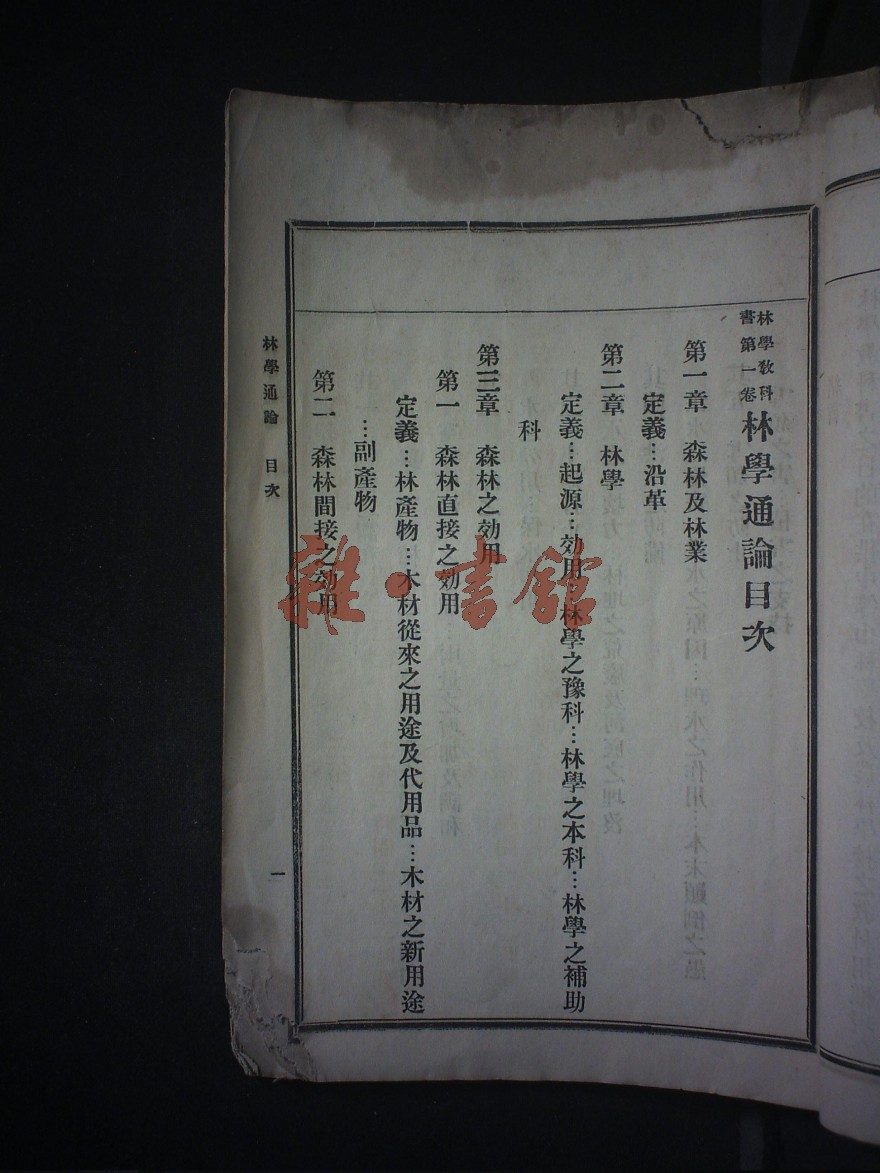 林學教科書第一卷 林學通論目次
第一章 森林及林業
定義…沿革
第二章 林學
定義…起源…効用…林學之豫科…林學之本科…林學之補助
科
第三章 森林之効用
第一 森林直接之効用
定義…林產物…木材從來之用途及代用品…木材之新用途
…副產物
第二 森林間接之効用
林學通論 目次 一
雜·書館